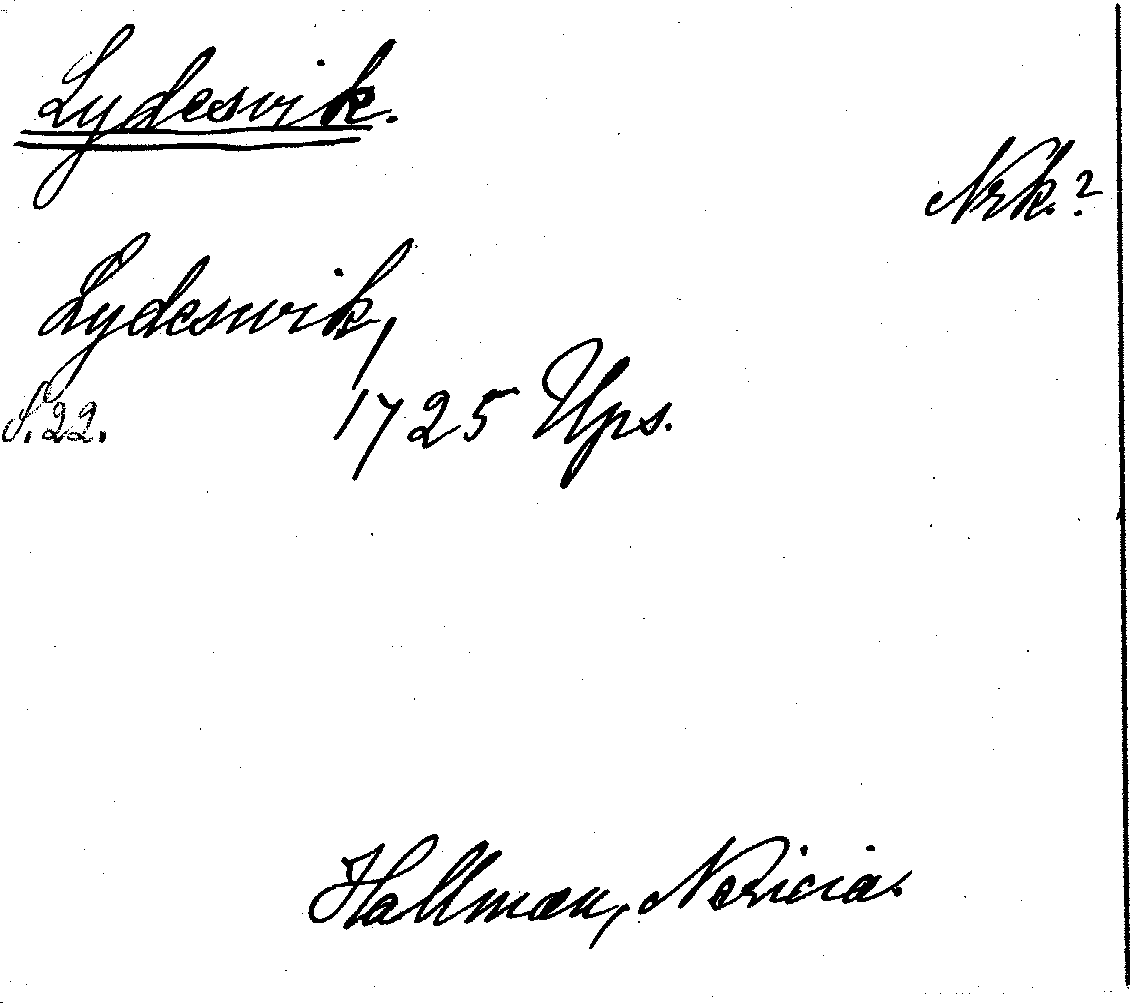 Lydesvik.
Nrk.?
Lydesvik,
S. 22. 1725 Ups.
Hallman, Nericia.